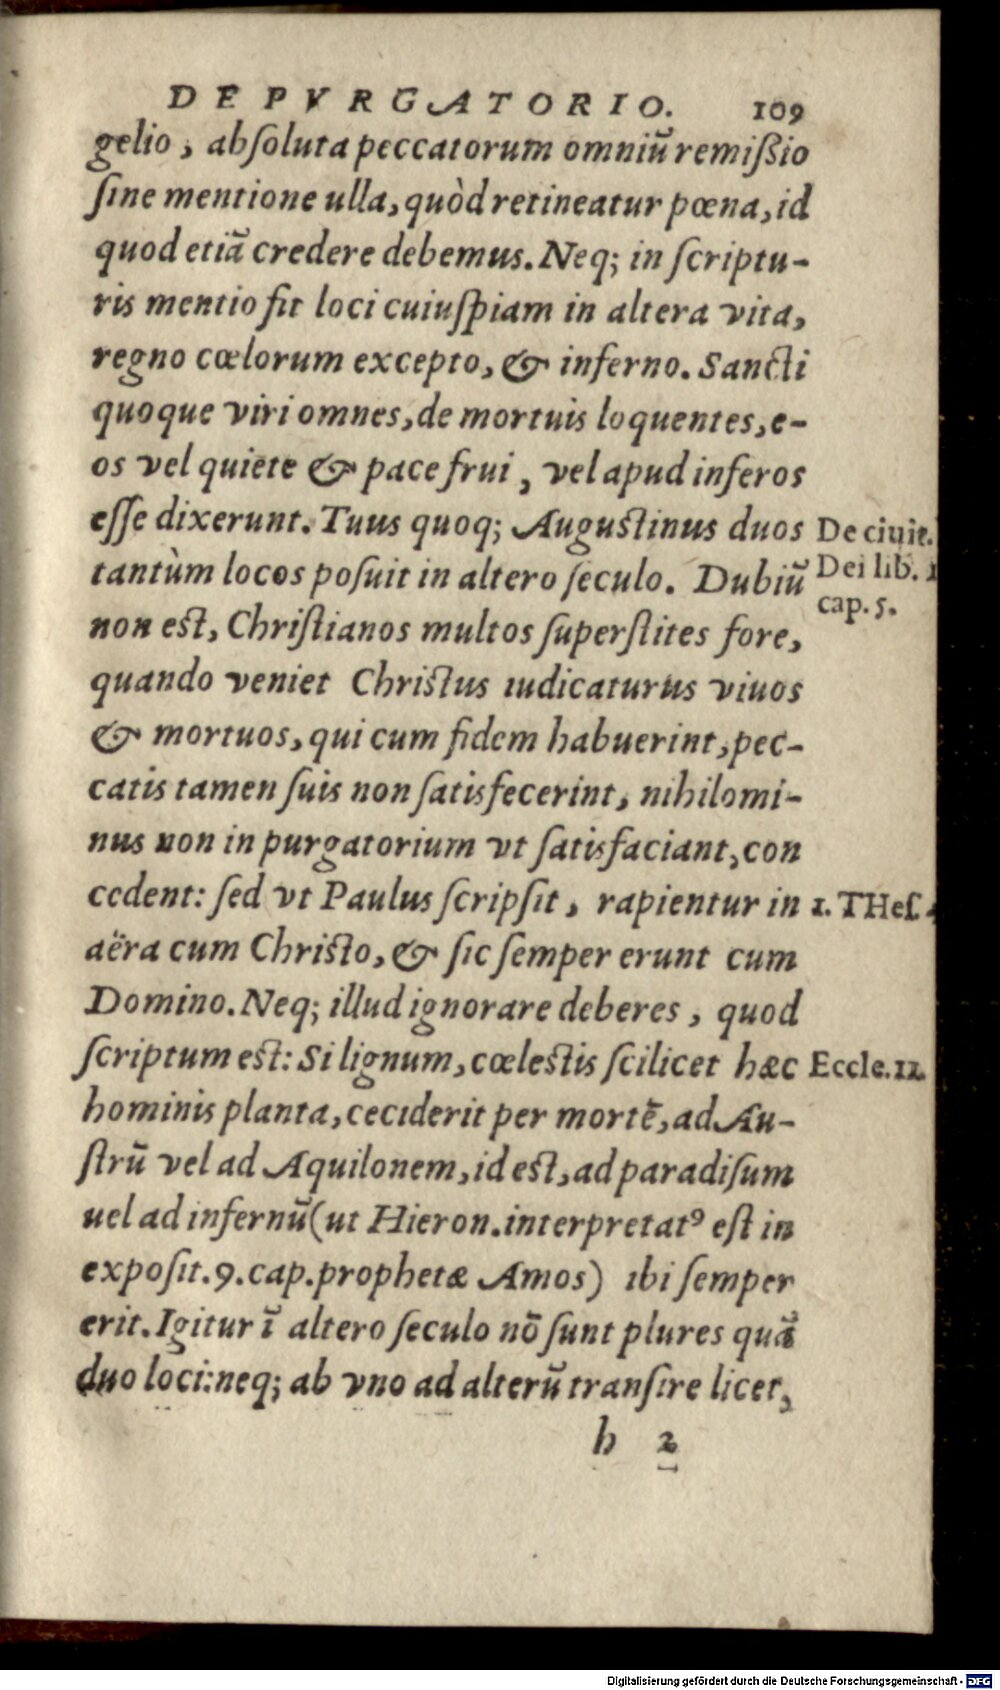 DE PVRGATORIO. 109
gelio, absoluta peccatorum omniū remißio
sine mentione ulla, quòd retineatur pœna, id
quod etiā credere debemus. Neq; in scriptu-
ris mentio fit loci cuiuspiam in altera vita,
regno cœlorum excepto, & inferno. Sancti
quoque viri omnes, de mortuis loquentes, e-
os vel quiete & pace frui, vel apud inferos
esse dixerunt. Tuus quoq; Augustinus duos
tantùm locos posuit in altero seculo. Dubiū
non est, Christianos multos superstites fore,
quando veniet Christus iudicaturus viuos
& mortuos, qui cum fidem habuerint, pec-
catis tamen suis non satisfecerint, nihilomi-
nus non in purgatorium vt satisfaciant, con
cedent: sed vt Paulus scripsit, rapientur in
aëra cum Christo, & sic semper erunt cum
Domino. Neq; illud ignorare deberes, quod
scriptum est: Si lignum, cœlestis scilicet hæc
hominis planta, ceciderit per mortē, ad Au-
strū vel ad Aquilonem, id est, ad paradisum
uel ad infernū (ut Hieron. interpretatꝰ est in
exposit. 9. cap. prophetæ Amos) ibi semper
erit. Igitur ī altero seculo nō sunt plures quā
duo loci: neq; ab vno ad alterū transire licet,
h 2
De ciuit.
Dei lib.
cap. 5.
1. THes.
Eccle. 11.
Digitalisierung gefördert durch die Deutsche Forschungsgemeinschaft - DFG